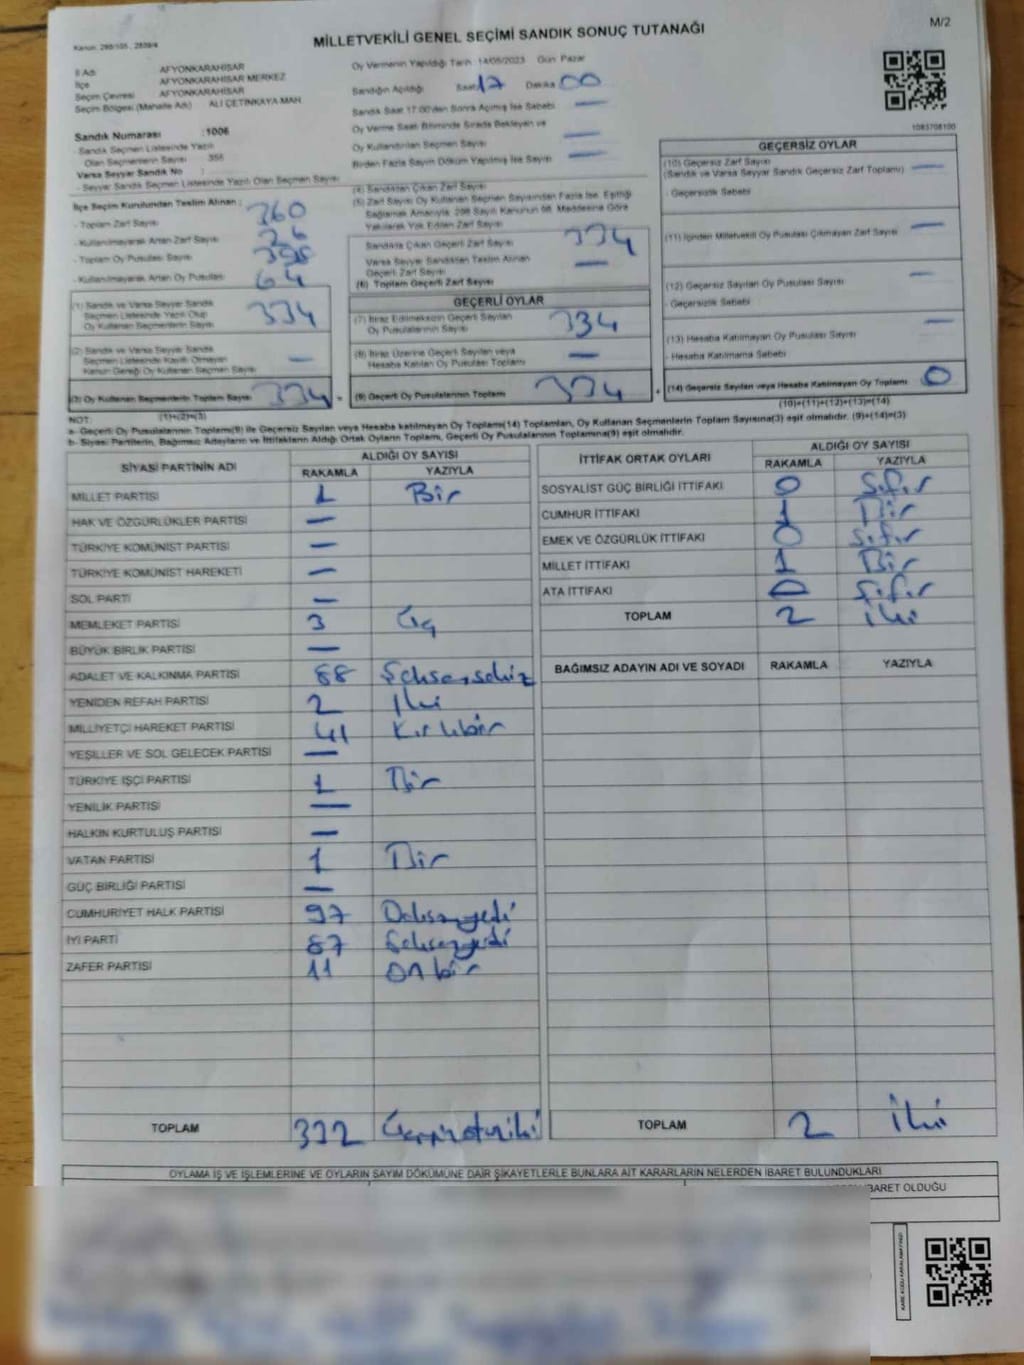 M/2
Kanun: 298/105 , 2839/4
MİLLETVEKİLİ GENEL SEÇİMİ SANDIK SONUÇ TUTANAĞI
İl Adı AFYONKARAHİSAR
İlçe AFYONKARAHİSAR MERKEZ
Seçim Çevresi AFYONKARAHİSAR
Seçim Bölgesi (Mahalle Adı) ALİ ÇETİNKAYA MAH.
Sandık Numarası : 1006
- Sandık Seçmen Listesinde Yazılı
Olan Seçmenlerin Sayısı 355
Varsa Seyyar Sandık No :
- Seyyar Sandık Seçmen Listesinde Yazılı Olan Seçmen Sayısı
İlçe Seçim Kurulundan Teslim Alınan ;
- Toplam Zarf Sayısı 360
- Kullanılmayarak Artan Zarf Sayısı 26
- Toplam Oy Pusulası Sayısı 398
- Kullanılmayarak Artan Oy Pusulası 64
(1) Sandık ve Varsa Seyyar Sandık
Seçmen Listesinde Yazılı Olup
Oy Kullanan Seçmenlerin Sayısı 334
(2) Sandık ve Varsa Seyyar Sandık
Seçmen Listesinde Kayıtlı Olmayan
Kanun Gereği Oy Kullanan Seçmen Sayısı —
(3) Oy Kullanan Seçmenlerin Toplam Sayısı 334 =
(1)+(2)=(3)
Oy Vermenin Yapıldığı Tarih 14/05/2023 Gün Pazar
Sandığın Açıldığı Saat 17 Dakika 00
Sandık Saat 17:00'den Sonra Açılmış İse Sebebi —
Oy Verme Saati Bitiminde Sırada Bekleyen ve
Oy Kullandırılan Seçmen Sayısı —
Birden Fazla Sayım Döküm Yapılmış İse Sayısı —
(4) Sandıktan Çıkan Zarf Sayısı
(5) Zarf Sayısı Oy Kullanan Seçmen Sayısından Fazla İse, Eşitliği
Sağlamak Amacıyla, 298 Sayılı Kanunun 98. Maddesine Göre
Yakılarak Yok Edilen Zarf Sayısı
Sandıkta Çıkan Geçerli Zarf Sayısı 334
Varsa Seyyar Sandıktan Teslim Alınan
Geçerli Zarf Sayısı —
(6) Toplam Geçerli Zarf Sayısı
GEÇERLİ OYLAR
(7) İtiraz Edilmeksizin Geçerli Sayılan
Oy Pusulalarının Sayısı 334
(8) İtiraz Üzerine Geçerli Sayılan veya
Hesaba Katılan Oy Pusulası Toplamı —
(9) Geçerli Oy Pusulalarının Toplamı 334 +
1083708100
GEÇERSİZ OYLAR
(10) Geçersiz Zarf Sayısı —
(Sandık ve Varsa Seyyar Sandık Geçersiz Zarf Toplamı)
- Geçersizlik Sebebi
(11) İçinden Milletvekili Oy Pusulası Çıkmayan Zarf Sayısı —
(12) Geçersiz Sayılan Oy Pusulası Sayısı —
- Geçersizlik Sebebi
(13) Hesaba Katılmayan Oy Pusulası Sayısı —
- Hesaba Katılmama Sebebi
(14) Geçersiz Sayılan veya Hesaba Katılmayan Oy Toplamı 0
(10)+(11)+(12)+(13)=(14)
NOT:
a- Geçerli Oy Pusulalarının Toplamı(9) ile Geçersiz Sayılan veya Hesaba katılmayan Oy Toplamı(14) Toplamları, Oy Kullanan Seçmenlerin Toplam Sayısına(3) eşit olmalıdır. (9)+(14)=(3)
b- Siyasi Partilerin, Bağımsız Adayların ve İttifakların Aldığı Ortak Oyların Toplamı, Geçerli Oy Pusulalarının Toplamına(9) eşit olmalıdır.
SİYASİ PARTİNİN ADI ALDIĞI OY SAYISI
RAKAMLA YAZIYLA
MİLLET PARTİSİ 1 Bir
HAK VE ÖZGÜRLÜKLER PARTİSİ —
TÜRKİYE KOMÜNİST PARTİSİ —
TÜRKİYE KOMÜNİST HAREKETİ —
SOL PARTİ —
MEMLEKET PARTİSİ 3 Üç
BÜYÜK BİRLİK PARTİSİ —
ADALET VE KALKINMA PARTİSİ 88 Seksensekiz
YENİDEN REFAH PARTİSİ 2 İki
MİLLİYETÇİ HAREKET PARTİSİ 41 Kırkbir
YEŞİLLER VE SOL GELECEK PARTİSİ —
TÜRKİYE İŞÇİ PARTİSİ 1 Bir
YENİLİK PARTİSİ —
HALKIN KURTULUŞ PARTİSİ —
VATAN PARTİSİ 1 Bir
GÜÇ BİRLİĞİ PARTİSİ —
CUMHURİYET HALK PARTİSİ 97 Doksanyedi
İYİ PARTİ 87 Seksenyedi
ZAFER PARTİSİ 11 Onbir
TOPLAM 332 Üçyüzotuziki
İTTİFAK ORTAK OYLARI ALDIĞI OY SAYISI
RAKAMLA YAZIYLA
SOSYALİST GÜÇ BİRLİĞİ İTTİFAKI 0 Sıfır
CUMHUR İTTİFAKI 1 Bir
EMEK VE ÖZGÜRLÜK İTTİFAKI 0 Sıfır
MİLLET İTTİFAKI 1 Bir
ATA İTTİFAKI 0 Sıfır
TOPLAM 2 İki
BAĞIMSIZ ADAYIN ADI VE SOYADI RAKAMLA YAZIYLA
TOPLAM 2 İki
OYLAMA İŞ VE İŞLEMLERİNE VE OYLARIN SAYIM DÖKÜMÜNE DAİR ŞİKAYETLERLE BUNLARA AİT KARARLARIN NELERDEN İBARET BULUNDUKLARI
İBARET OLDUĞU
KARE KODU KARALAMAYINIZ!